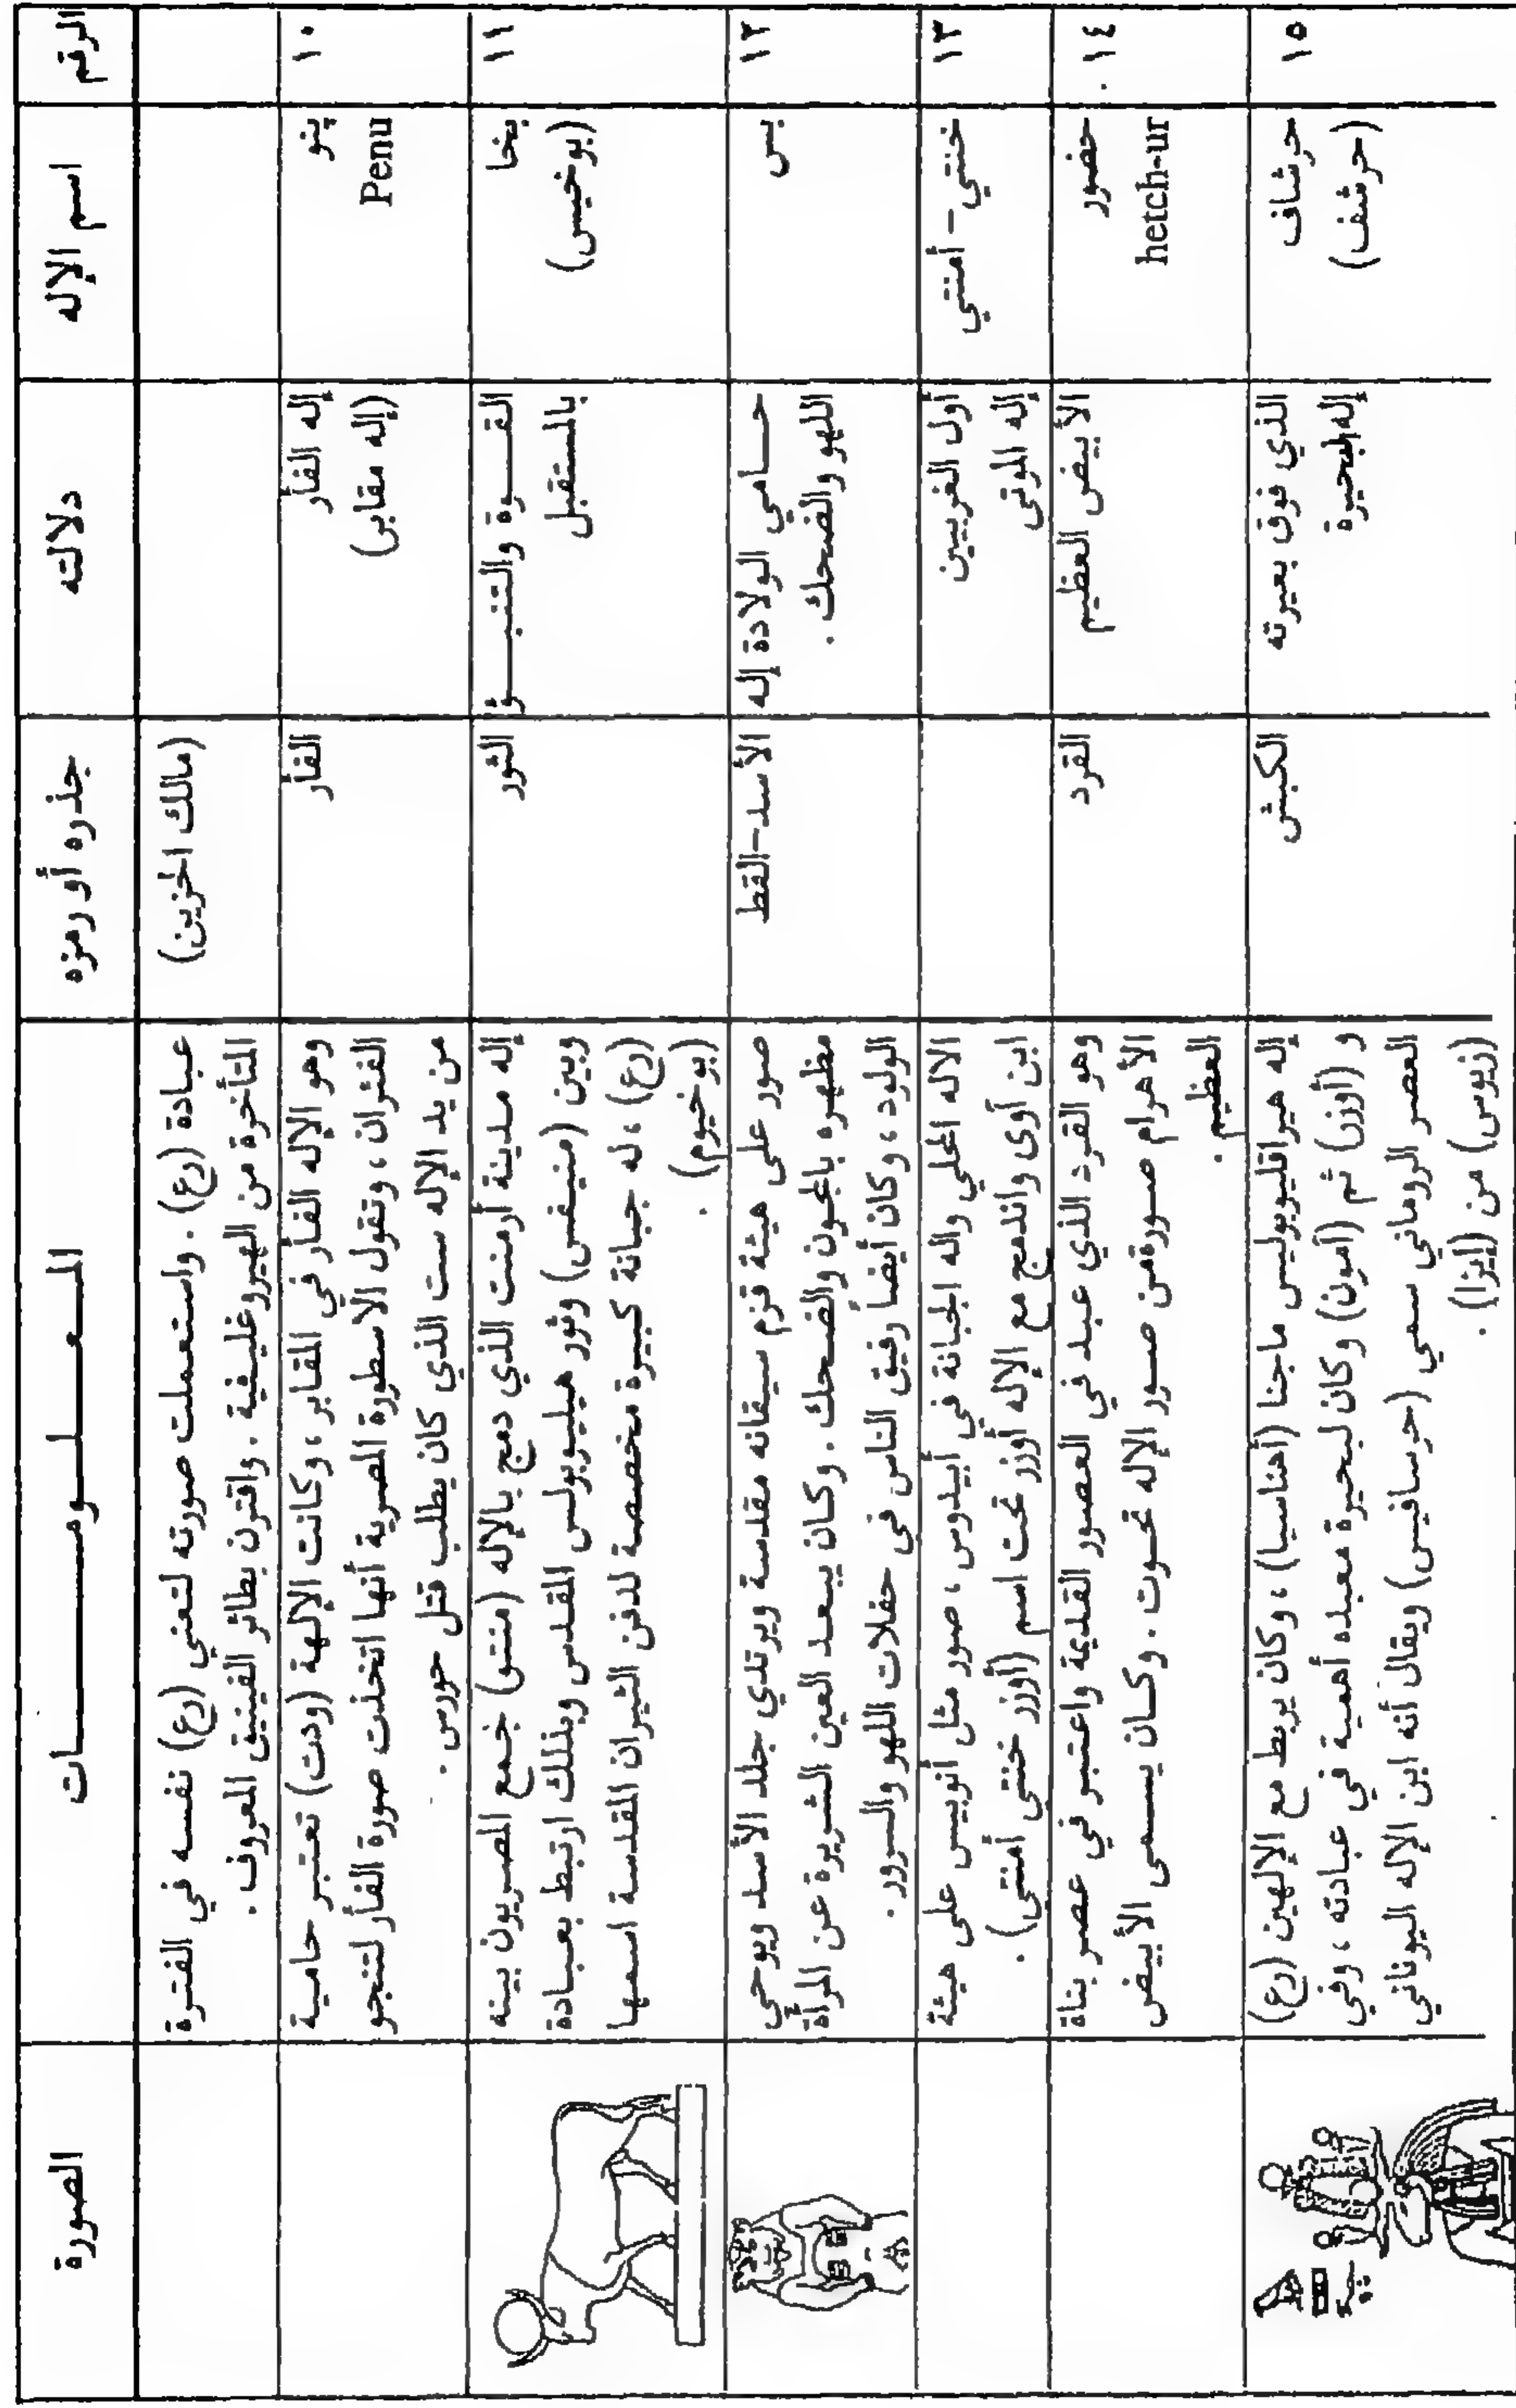 الرقم
اسم الإله
دلالته
جذره أو رمزه
المعلومات
الصورة
(مالك الحزين)
عبادة (رع). واستعملت صورته لتعني (رع) نفسه في الفترة
المتأخرة من الهيروغليفية. واقترن بطائر الفينيق المعروف.
١٠
پنو
Penu
إله الفأر
(إله مقابر)
الفأر
وهو الإله الفأر في المقابر، وكانت الإلهة (ودت) تعتبر حامية
الفئران، وتقول الأسطورة المصرية أنها اتخذت صورة الفأر لتنجو
من يد الإله ست الذي كان يطلب قتل حورس.
١١
بخا
(بوخيس)
القوة والتنبؤ
بالمستقبل
الثور
إله مدينة أرمنت الذي دمج بالإله (منتو) جمع المصريون بينه
وبين (منيفس) وثور هيليوبولس المقدس وبذلك ارتبط بعبادة
(رع)، له جبانة كبيرة مخصصة لدفن الثيران المقدسة اسمها
(بوخيوم).
١٢
بس
حامي الولادة إله
اللهو والضحك.
الأسد-القط
صور على هيئة قزم سيقانه مقدسة ويرتدي جلد الأسد ويوحي
مظهره بالمجون والضحك. وكان يبعد العين الشريرة عن المرأة
الولود، وكان أيضاً رفيق الناس في حفلات اللهو والسرور.
١٣
خنتي-أمنتي
أول الغربيين
إله الموتى
الاله المحلي واله الجبانة في أبيدوس، صور مثل أنوبيس على هيئة
ابن آوى واندمج مع الإله أوزر تحت اسم (أوزر خنتي أمنتي).
١٤
حضور
hetch-ur
الأبيض العظيم
القرد
وهو القرد الذي عبد في العصور القديمة واعتبر في عصر بناة
الأهرام صورة من صور الإله تحوت. وكان يسمى الأبيض
العظيم.
١٥
حرشاف
(حرشف)
الذي فوق بعيرته
إله البحيرة
الكبش
إله هيراقليوبوليس ماجنا (أهناسيا)، وكان يربط مع الإلهين (رع)
و (أوزر) ثم (آمون) وكان لبحيرة معبده أهمية في عبادته، وفي
العصر الروماني سمي (حرسافيس) ويقال أنه ابن الإله اليوناني
(زيوس) من (إيزا).